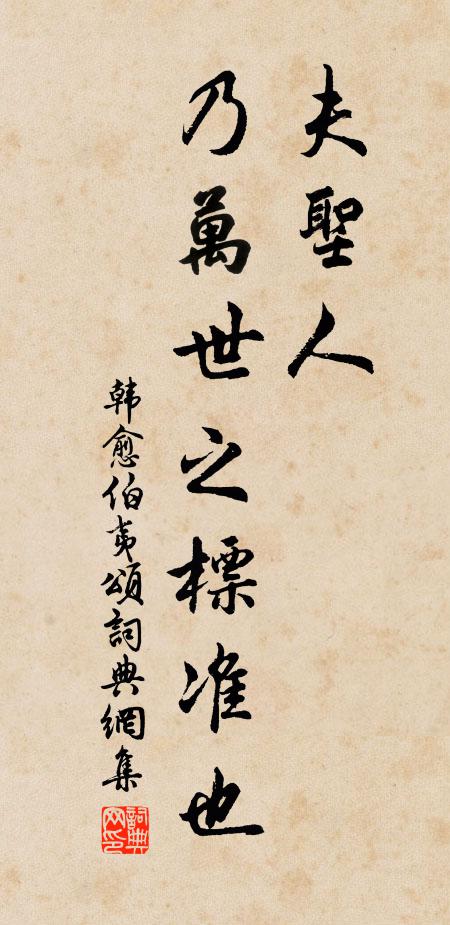 夫聖人
乃萬世之標准也
韩愈伯夷頌詞典網集
詞典網印